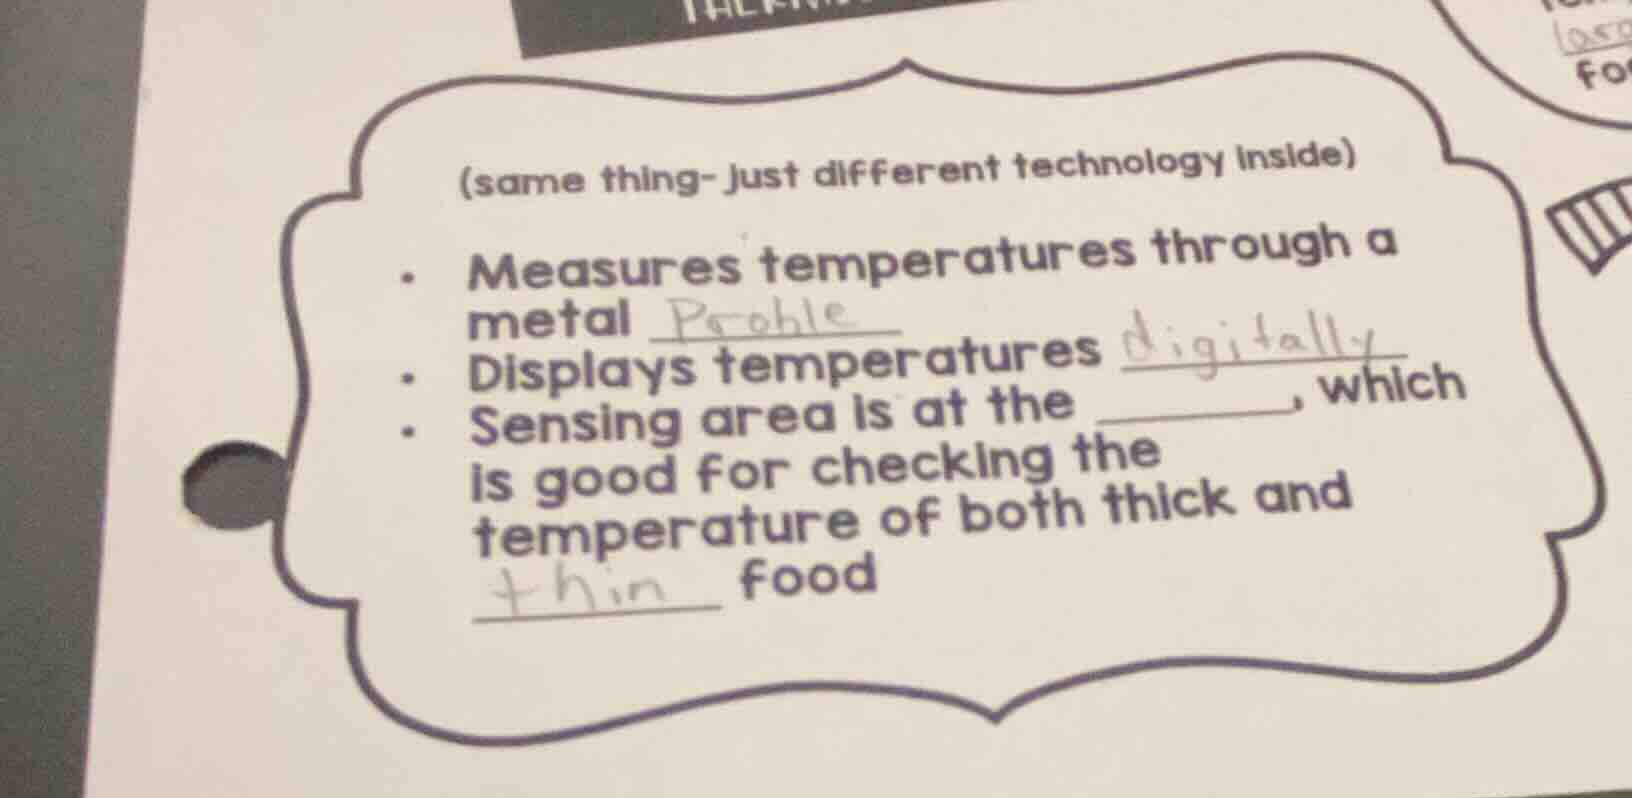 (same thing- just different technology inside)
• Measures temperatures through a
metal Prohle
• Displays temperatures digitally
• Sensing area is at the ________, which
is good for checking the
temperature of both thick and
thin food